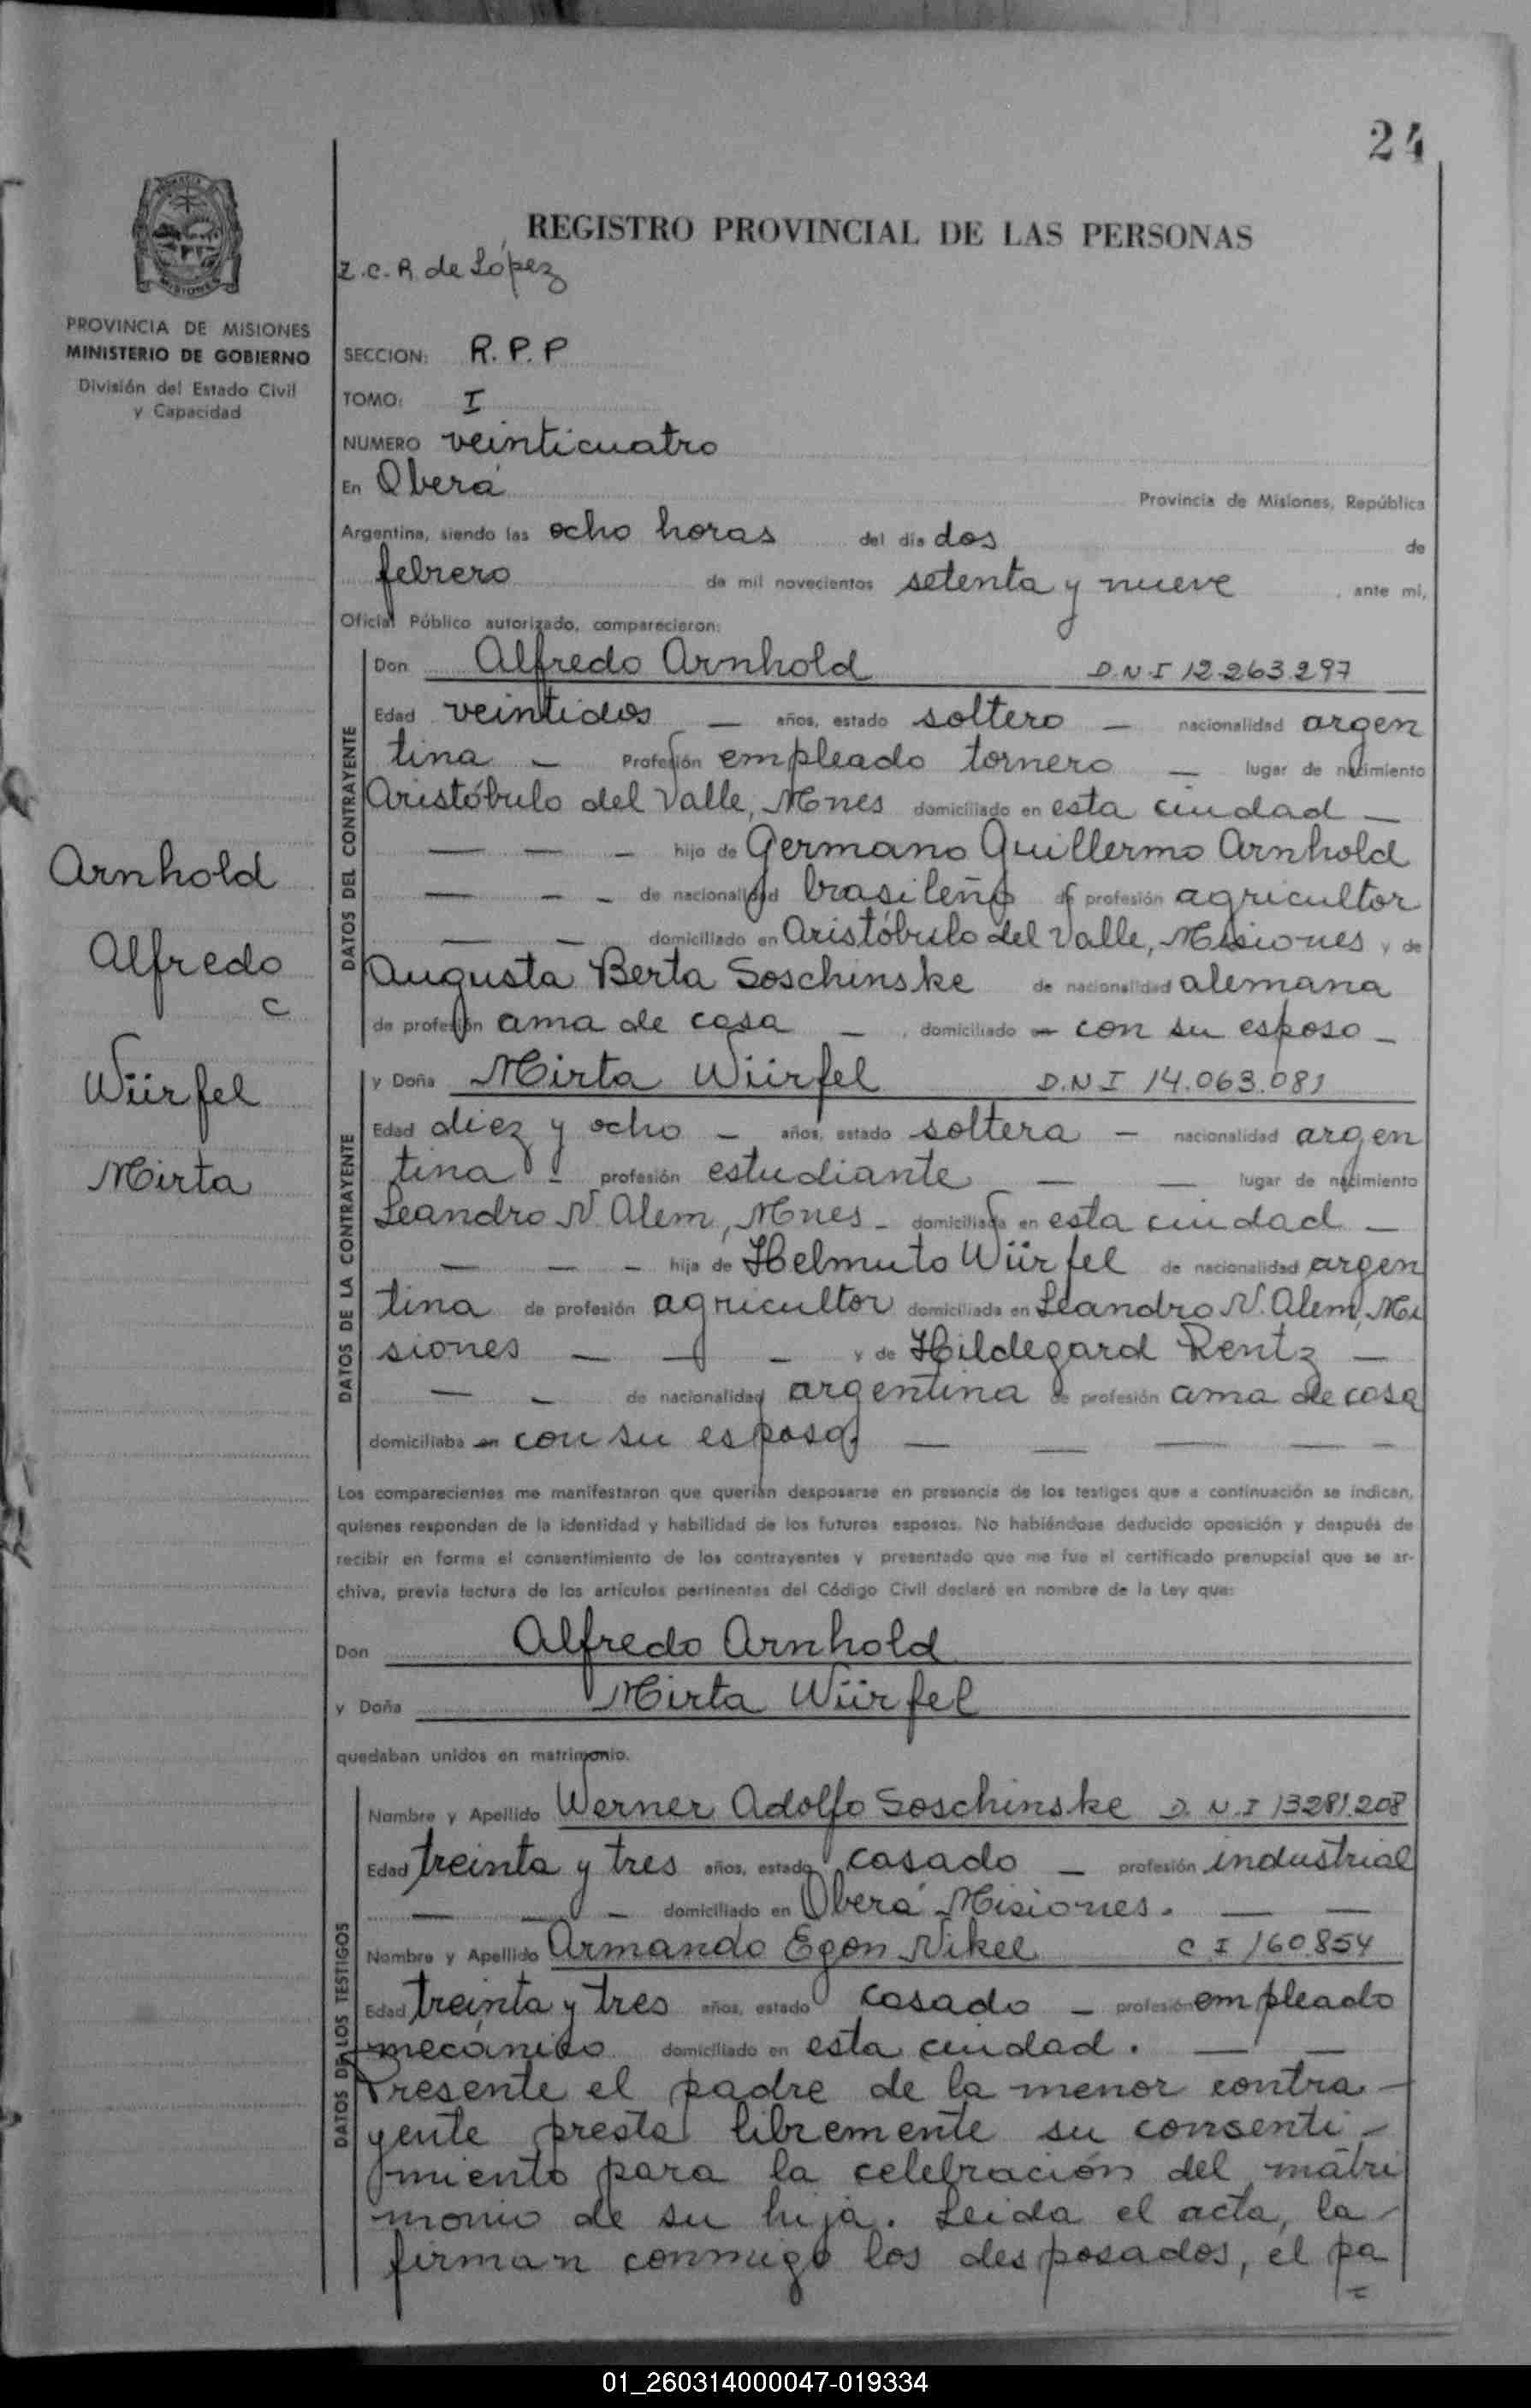 24
REGISTRO PROVINCIAL DE LAS PERSONAS
Z.C.R. de López
PROVINCIA DE MISIONES
MINISTERIO DE GOBIERNO
División del Estado Civil
y Capacidad
SECCION: R.P.P
TOMO: I
NUMERO veinticuatro
En Oberá Provincia de Misiones, República
Argentina, siendo las ocho horas del día dos de
febrero de mil novecientos setenta y nueve, ante mi,
Oficial Público autorizado, comparecieron:
DATOS DEL CONTRAYENTE
Don Alfredo Arnhold D.N.I 12.263.297
Edad veintidos — años, estado soltero — nacionalidad argen
tina — Profesión empleado tornero — lugar de nacimiento
Aristóbulo del Valle, Mnes domiciliado en esta ciudad —
— — — hijo de Germano Guillermo Arnhold
— — — de nacionalidad brasileño de profesión agricultor
— — domiciliado en Aristóbulo del Valle, Misiones y de
Augusta Berta Soschinske de nacionalidad alemana
de profesión ama de casa — , domiciliado en con su esposo —
Arnhold
Alfredo
c
Würfel
Mirta
DATOS DE LA CONTRAYENTE
y Doña Mirta Würfel D.N I 14.063.081
Edad diez y ocho — años, estado soltera — nacionalidad argen
tina — profesión estudiante — — lugar de nacimiento
Leandro N. Alem, Mnes — domiciliada en esta ciudad —
— — — hija de Helmuto Würfel de nacionalidad argen
tina de profesión agricultor domiciliada en Leandro N. Alem, Mi
siones — — — y de Hildegard Rentz —
— — de nacionalidad argentina de profesión ama de casa
domiciliaba en con su esposo. — — — — —
Los comparecientes me manifestaron que querían desposarse en presencia de los testigos que a continuación se indican,
quienes responden de la identidad y habilidad de los futuros esposos. No habiéndose deducido oposición y después de
recibir en forma el consentimiento de los contrayentes y presentado que me fue el certificado prenupcial que se ar-
chiva, previa lectura de los artículos pertinentes del Código Civil declaré en nombre de la Ley que:
Don Alfredo Arnhold
y Doña Mirta Würfel
quedaban unidos en matrimonio.
DATOS DE LOS TESTIGOS
Nombre y Apellido Werner Adolfo Soschinske D.N.I 13281.208
Edad treinta y tres años, estado casado — profesión industrial
— — — domiciliado en Oberá Misiones. — —
Nombre y Apellido Armando Egon Nikel C I 160.854
Edad treinta y tres años, estado casado — profesión empleado
mecánico domiciliado en esta ciudad. — —
Presente el padre de la menor contra-
yente presta libremente su consenti-
miento para la celebración del matri
monio de su hija. Leida el acta, la
firman conmigo los desposados, el pa
=
01_260314000047-019334